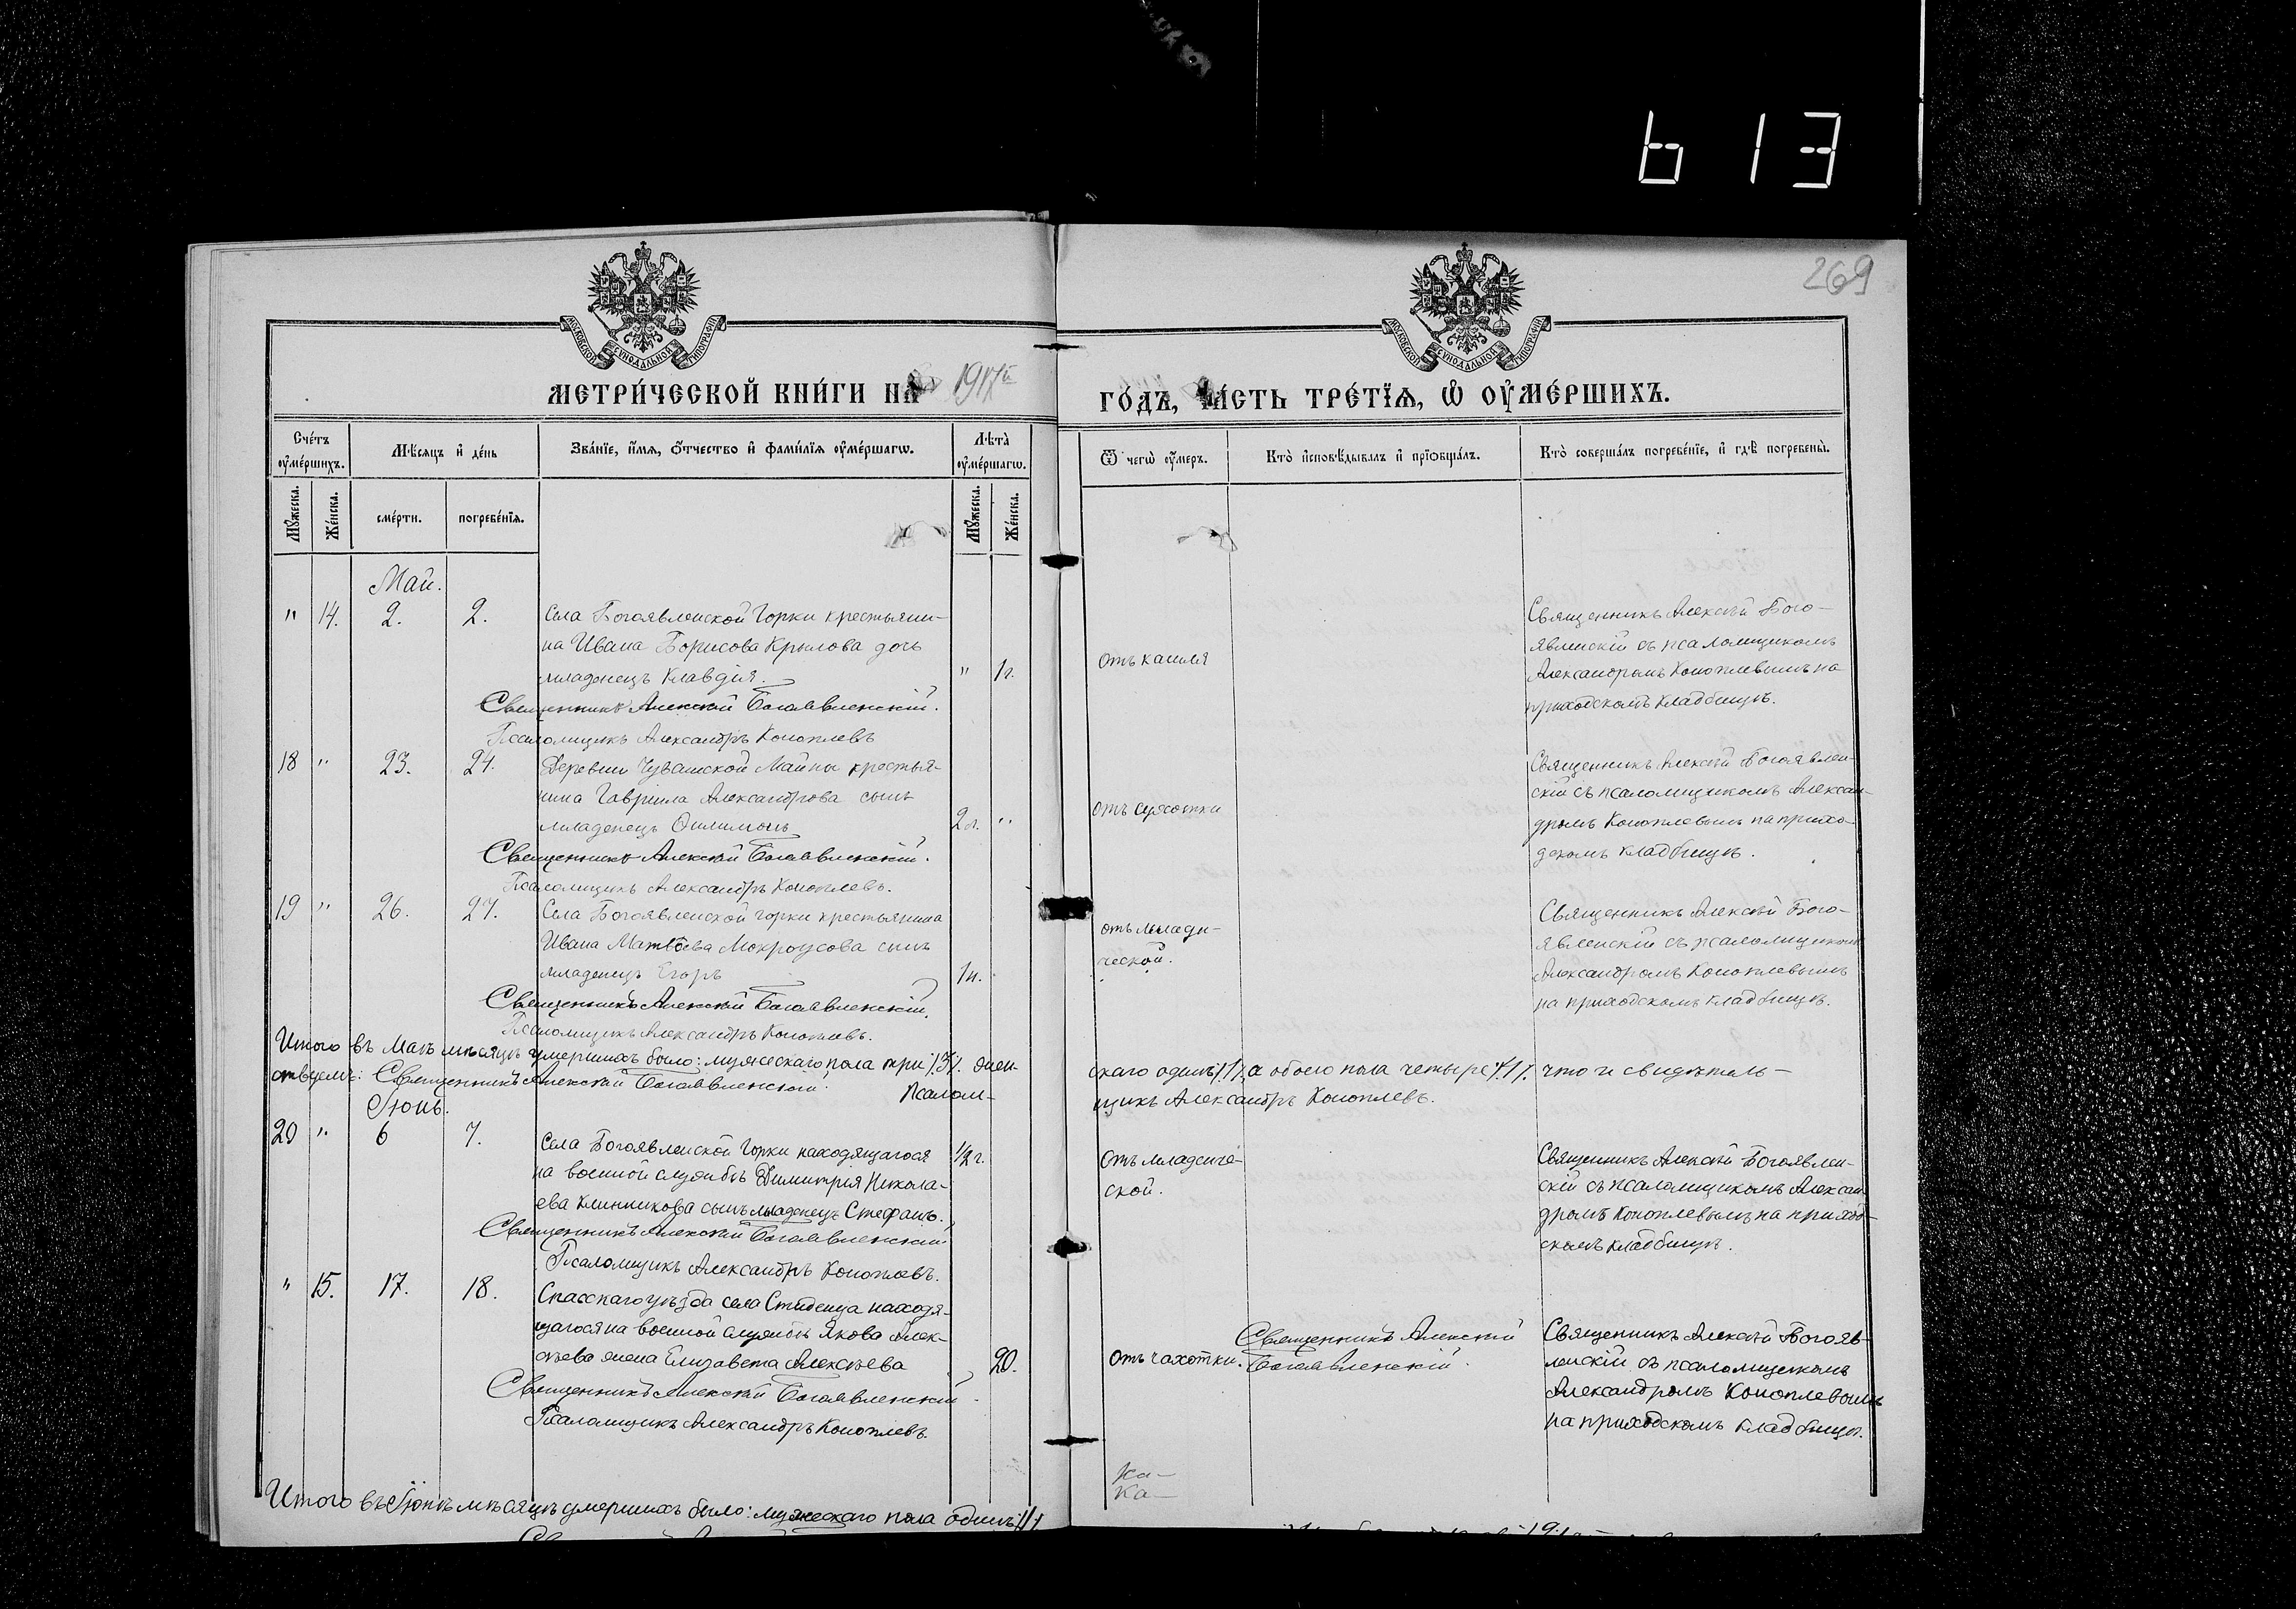 613
269
МОСКОВСКОЙ СѴНОДАЛЬНОЙ ТИПОГРАФІИ
МОСКОВСКОЙ СѴНОДАЛЬНОЙ ТИПОГРАФІИ
МЕТРИ́ЧЕСКОЙ КНИ́ГИ НА 1917й
ГО́ДЪ, ЧА́СТЬ ТРЕ́ТЇѦ, Ѡ҆ ОУ҆МЕ́РШИХЪ.
Сче́тъ оу҆ме́ршихъ.
Мѣ́сяцъ и҆ де́нь
Зва́нїе, и҆́мѧ, ѻ҆́тчество и҆ фами́лїѧ оу҆ме́ршагѡ.
Лѣ́та оу҆ме́ршагѡ.
Ѿ чегѡ̀ оу҆́меръ.
Кто̀ и҆сповѣ́дывалъ и҆ прїѡбща́лъ.
Кто̀ соверша́лъ погребе́нїе, и҆ гдѣ̀ погребены̀.
Мꙋ́жеска.
Же́нска.
сме́рти.
погребе́нїѧ.
Мꙋ́жеска.
Же́нска.
Май.
" 14. 2. 2. Села Богоявленской Горки крестьяни-
на Ивана Борисова Крылова дочь
младенецъ Клавдія. " 1 г.
Священникъ Алексій Богоявленскій.
Псаломщикъ Александръ Коноплевъ
отъ кашля
Священникъ Алексѣй Бого-
явленскій съ псаломщикомъ
Александромъ Коноплевымъ на
приходскомъ кладбищѣ.
18 " 23. 24. Деревни Чувашской Майны крестья-
нина Гавріила Александрова сынъ
младенецъ Филимонъ 2 г. "
Священникъ Алексій Богоявленскій.
Псаломщикъ Александръ Коноплевъ.
Священникъ Алексѣй Богоявлен-
скій съ псаломщикомъ Алексан-
дромъ Коноплевымъ на прихо-
дскомъ кладбищѣ.
19 " 26. 27. Села Богоявленской горки крестьянина
Ивана Матвѣева Мокроусова сынъ
младенецъ Егоръ 1 н.
Священникъ Алексій Богоявленскій.
Псаломщикъ Александръ Коноплевъ.
отъ млади-
ческой.
Священникъ Алексѣй Бого-
явленскій съ псаломщикомъ
Александромъ Коноплевымъ
на приходскомъ кладбищѣ.
Итого въ Маѣ мѣсяцѣ умершихъ было: мужескаго пола три /3/. жен-
скаго одинъ /1/, а обоего пола четыре /4/. что и свидѣтель-
ствуемъ: Священникъ Алексій Богоявленскій. Псалом-
щикъ Александръ Коноплевъ.
Іюнь.
20 " 6 7. Села Богоявленской Горки находящагося 1/2 г.
на военной службѣ Димитрія Никола-
ева Клинникова сынъ младенецъ Стефанъ.
Священникъ Алексій Богоявленскій
Псаломщикъ Александръ Коноплевъ.
Отъ младенче-
ской.
Священникъ Алексѣй Богоявлен-
скій съ псаломщикомъ Алексан-
дромъ Коноплевымъ на приход-
скомъ кладбищѣ.
" 15. 17. 18. Спасскаго уѣзда села Студенца находя-
щагося на военной службѣ Якова Алек-
сѣева жена Елизавета Алексѣева 20.
Священникъ Алексій Богоявленскій.
Псаломщикъ Александръ Коноплевъ.
Отъ чахотки.
Священникъ Алексій
Богоявленскій.
Священникъ Алексѣй Богояв-
ленскій съ псаломщикомъ
Александромъ Коноплевымъ
на приходскомъ кладбищѣ.
Ка-
Ка-
Итого въ Іюнѣ мѣсяцѣ умершихъ было: мужескаго пола одинъ /1/